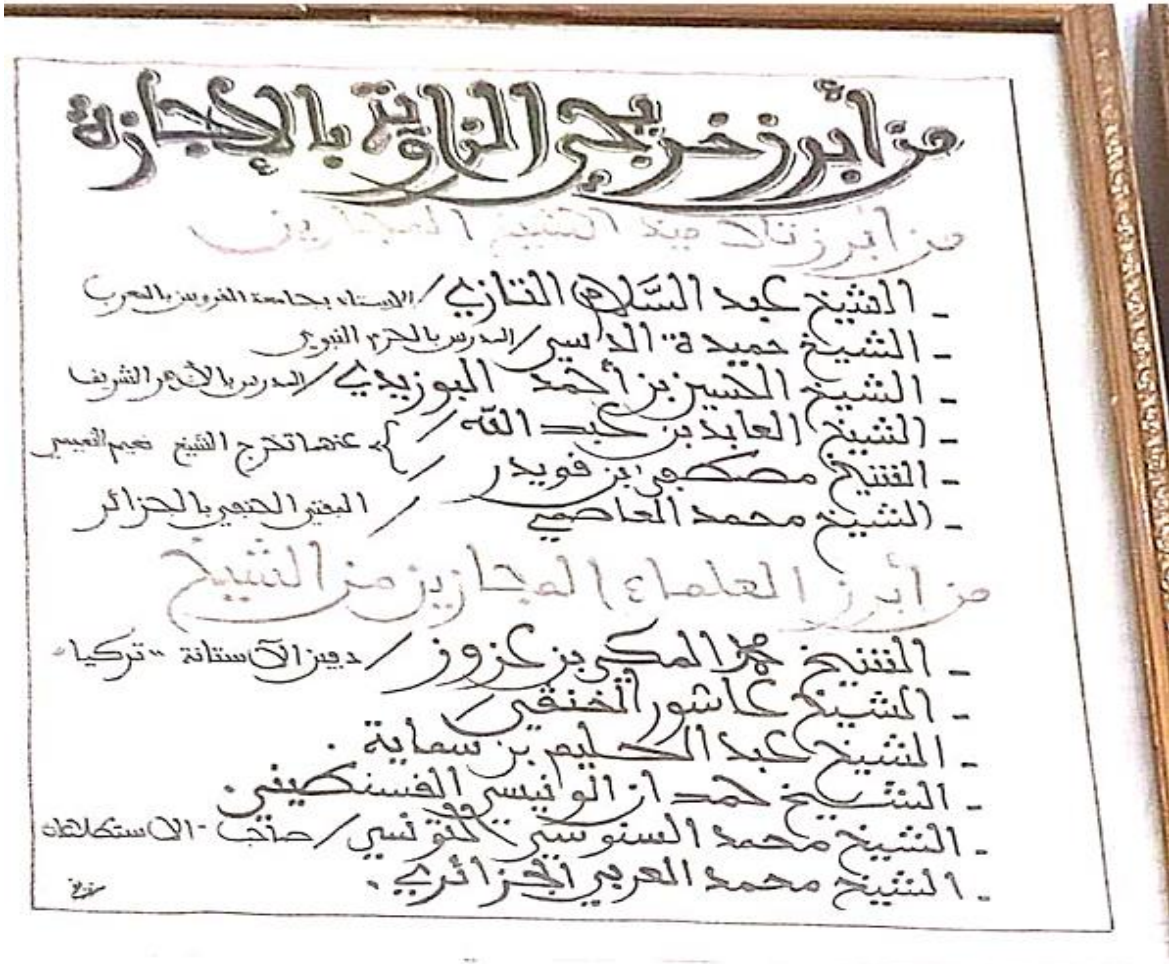 من أبرز خريجي الزاوية بالإجازة
من أبرز تلاميذ الشيخ المجازين
- الشيخ عبد السَّلام التازي / الاستاذ بجامعة القرويين بالمغرب
- الشيخ حميدة / المدرس بالحرم النبوي
- الشيخ الحسين بن أحمد البوزيدي / المدرس بالأزهر الشريف
- الشيخ العابد بن عبد الله /
- الشيخ مصطفى بن قويدر / } عنهما تخرج الشيخ نعيم النعيمي
- الشيخ محمد العاصمي / المفتي الحنفي بالجزائر
من أبرز العلماء المجازين من الشيخ
- الشيخ محمد المكي بن عزوز / دفين الآستانة "تركيا"
- الشيخ عاشور الخنقي /
- الشيخ عبد الحليم بن سماية .
- الشيخ حمدان الونيسي القسنطيني .
- الشيخ محمد السنوسي التونسي / صاحب - الاستطلاعات
- الشيخ محمد العربي الجزائري .